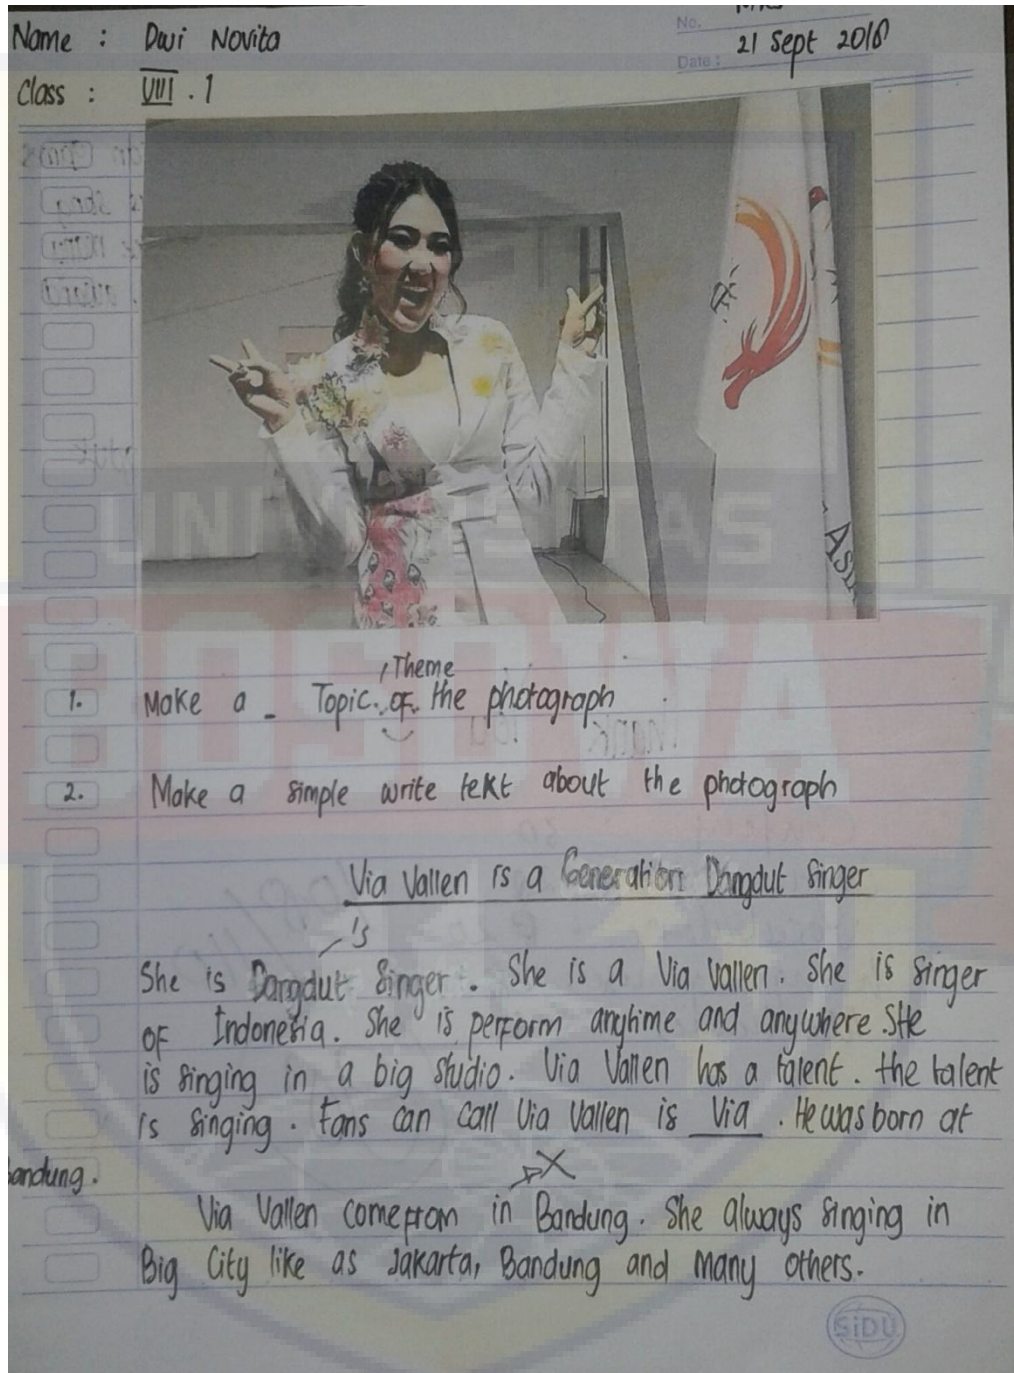 Name : Dwi Novita
No.
21 Sept 2018
Date :
Class : VIII . 1
UNIVERSITAS
BOSOWA
, Theme
1. Make a - Topic of the photograph
2. Make a simple write tekt about the photograph
Via Vallen is a Generation Dangdut Singer
's
She is Dangdut Singer . She is a Via Vallen . She is singer
of Indonesia . She is perform anytime and anywhere . SHe
is singing in a big studio . Via Vallen has a talent . the talent
is singing . Fans can call Via Vallen is Via . He was born at
Bandung .
X
Via Vallen comefrom in Bandung . She always singing in
Big City like as Jakarta, Bandung and many others .
SiDU